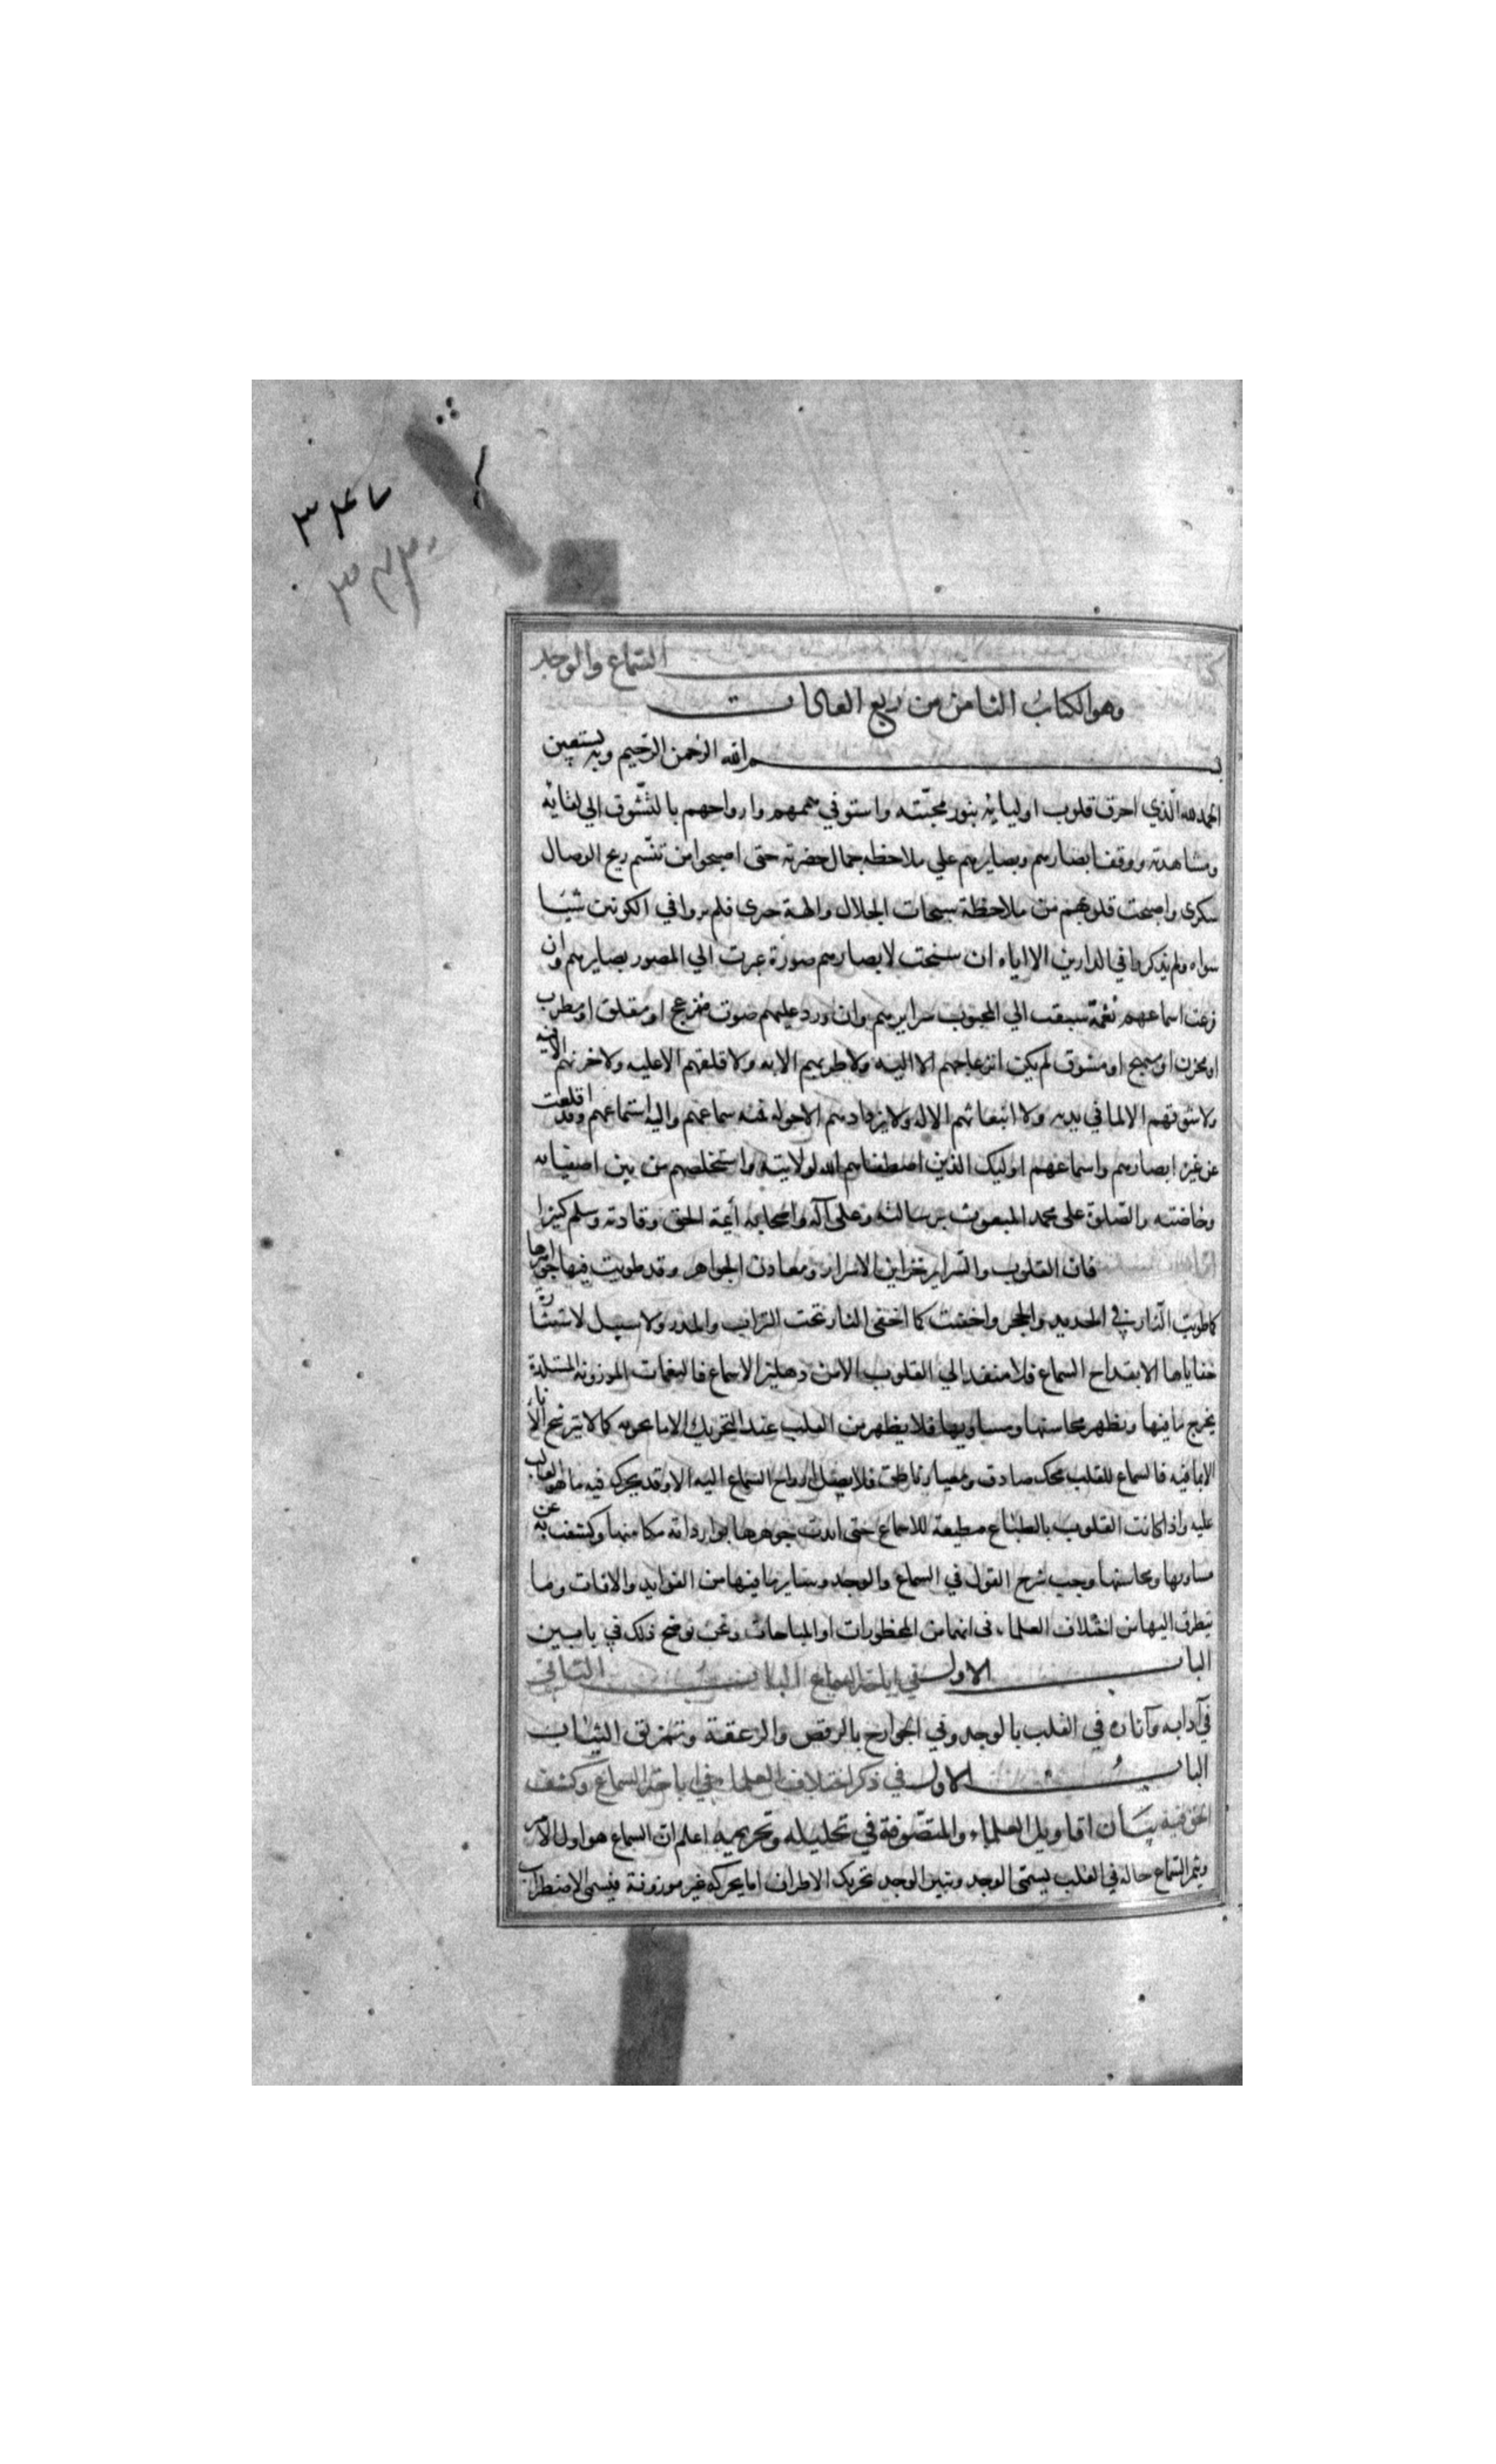 كتاب السماع والوجد
وهو الكتاب الثامن من ربع العادات
بسم الله الرحمن الرحيم وبه نستعين
الحمد لله الذي احرق قلوب اوليائه بنور محبته واستوفي هممهم وارواحهم بالتشوق الي لقائه
ومشاهدته ووقف ابصارهم وبصايرهم علي ملاحظه جمال حضرته حتى اصبحوا من تنسم ريح الوصال
سكرى واصبحت قلوبهم من ملاحظة سبحات الجلال والهة حيرى فلم يروا في الكونين شيئا
سواه ولم يذكروا في الدارين الا اياه ان سنحت لابصارهم صورة عبرت الي المصور بصايرهم وان
قرعت اسماعهم نغمة سبقت الي المحبوب سرايرهم وان ورد عليهم صوت مزعج او مقلق او مطرب
او محزن او مهيج او مشوق لم يكن انزعاجهم الا اليه ولا طربهم الا به ولا قلقهم الا عليه ولا حزنهم الا فيه
ولا شوقهم الا لما في يديه ولا انبعاثهم الا له ولا تردادهم الا حوله فمنه سماعهم واليه استماعهم وقد اقلعت
عن غيره ابصارهم واسماعهم اوليك الذين اصطفاهم الله لولايته واستخلصهم من بين اصفيائه
وخاصته والصلوة على محمد المبعوث برسالته وعلى آله واصحابه أئمة الحق وقادته وسلم كثيرا
فان القلوب والسراير خزاين الاسرار ومعادن الجواهر وقد طويت فيها جواهرها
كما طويت النار في الحديد والحجر واخفيت كما اخفى النار تحت التراب والمدر ولا سبيل لاستثارة
خفاياها الا بقداح السماع فلا منفذ الي القلوب الا من دهليز الاسماع فالنغمات الموزونة المستلذة
يخرج ما فيها وتظهر محاسنها ومساويها فلا يظهر من القلب عند التحريك الا ما يحويه كما لا يترشح الاناء
الا بما فيه فالسماع للقلب محك صادق ومعيار ناطق فلا يصل ارواح السماع اليه الا وقد يحرك فيه ما هو الغالب
عليه واذا كانت القلوب بالطباع مطيعة للاسماع حتى ابدت جوهرها بوارداته مكامنها وكشفت به عن
مساويها ومحاسنها وجب شرح القول في السماع والوجد وساير ما فيها من الفوايد والافات وما
يتطرق اليها من اختلاف العلماء في انهما من المحظورات او المباحات ونحن نوضح ذلك في بابين
الباب الاول في اباحة السماع الباب الثاني
في آدابه وآثاره في القلب بالوجد وفي الجوارح بالرقص والزعقة وتمزيق الثياب
الباب الاول في ذكر اختلاف العلماء في اباحة السماع وكشف
الحق فيه بيان اقاويل العلماء والمتصوفة في تحليله وتحريمه اعلم ان السماع هو اول الامر
ويثمر السماع حاله في القلب يسمى الوجد ويثمر الوجد تحريك الاطراف اما بحركة غير موزونة فيسمى الاضطراب